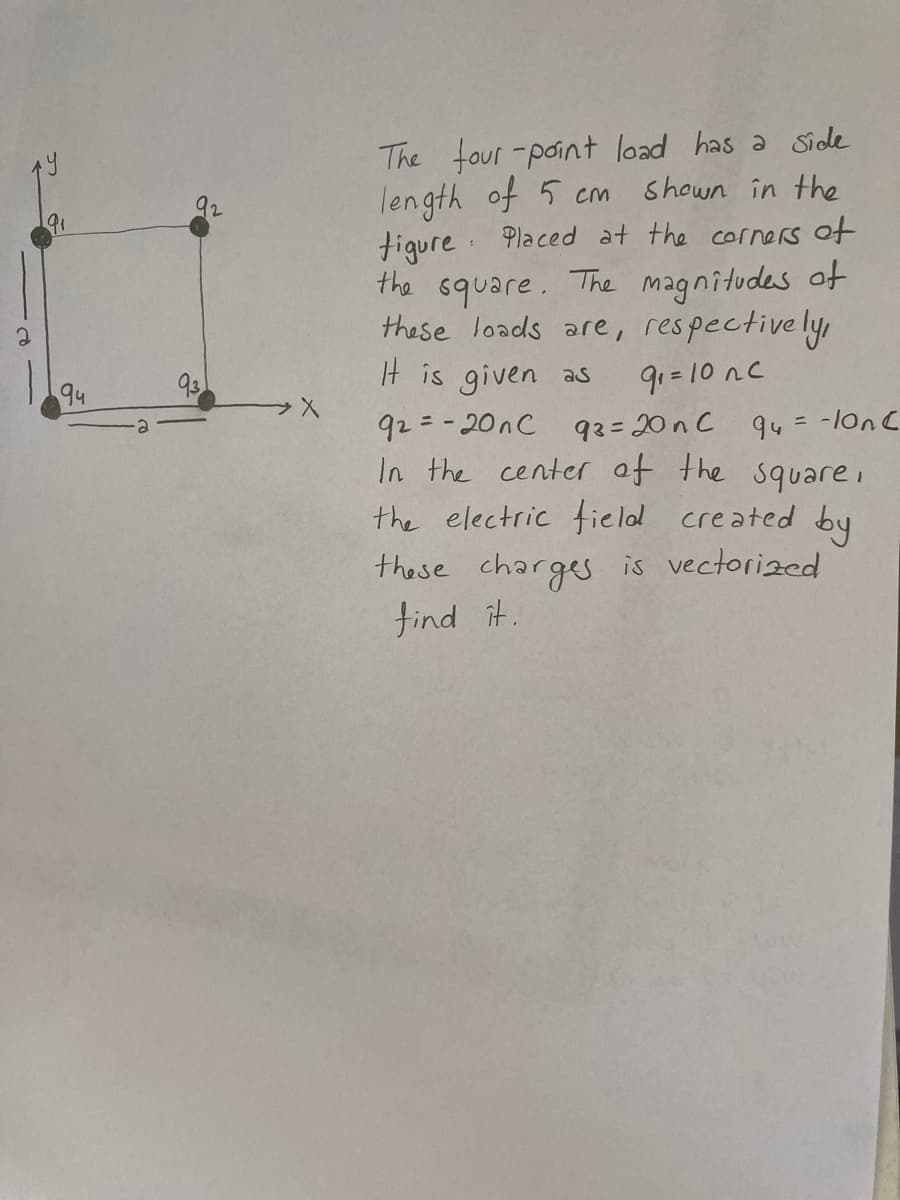 y
q1
q2
a
q4
q3
x
a
The four-point load has a side
length of 5 cm shown in the
figure. Placed at the corners of
the square. The magnitudes of
these loads are, respectively,
It is given as q1 = 10 nC
q2 = -20nC q3 = 20nC q4 = -10nC
In the center of the square,
the electric field created by
these charges is vectorized
find it.